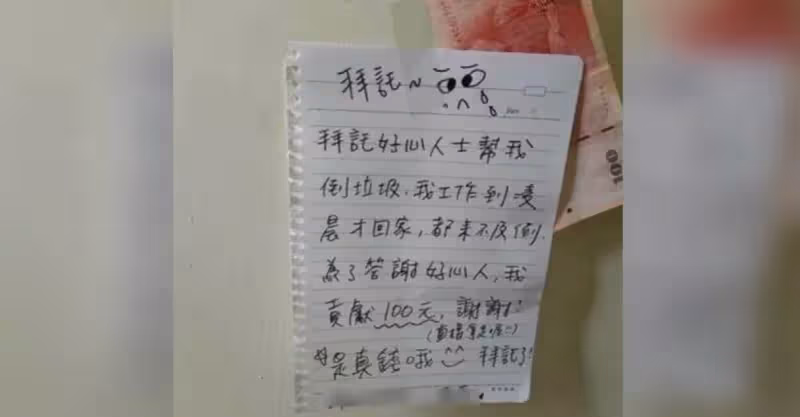 拜託~
拜託好心人士幫我
倒垃圾,我工作到凌
晨才回家,都來不及倒.
為了答謝好心人,我
貢獻100元,謝謝!
(直接拿走喔!)
是真錢哦 拜託了!
100